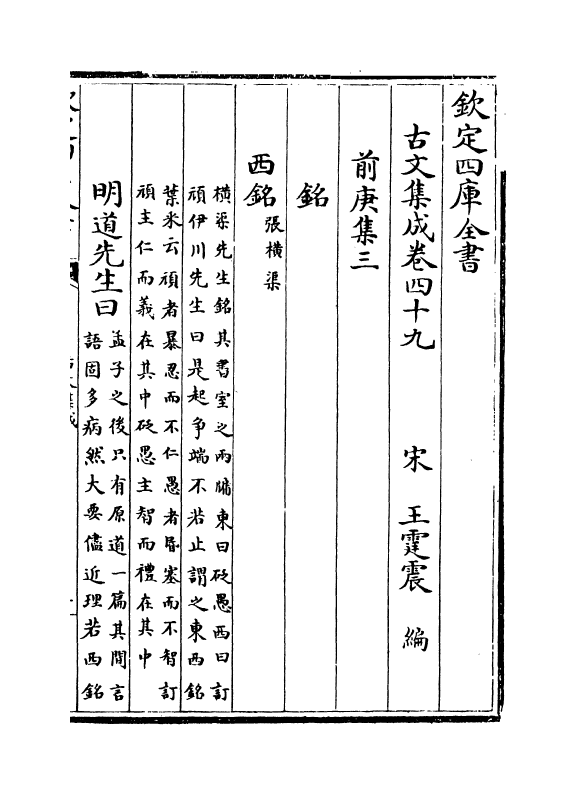 欽定四庫全書
古文集成卷四十九
宋 王霆震 編
前庚集三
銘
西銘張橫渠
橫渠先生銘其書室之兩牖東曰砭愚西曰訂
頑伊川先生曰是起爭端不若止謂之東西銘
葉米云頑者暴忍而不仁愚者昏塞而不智訂
頑主仁而義在其中砭愚主智而禮在其中
明道先生曰
孟子之後只有原道一篇其間言
語固多病然大要儘近理若西銘